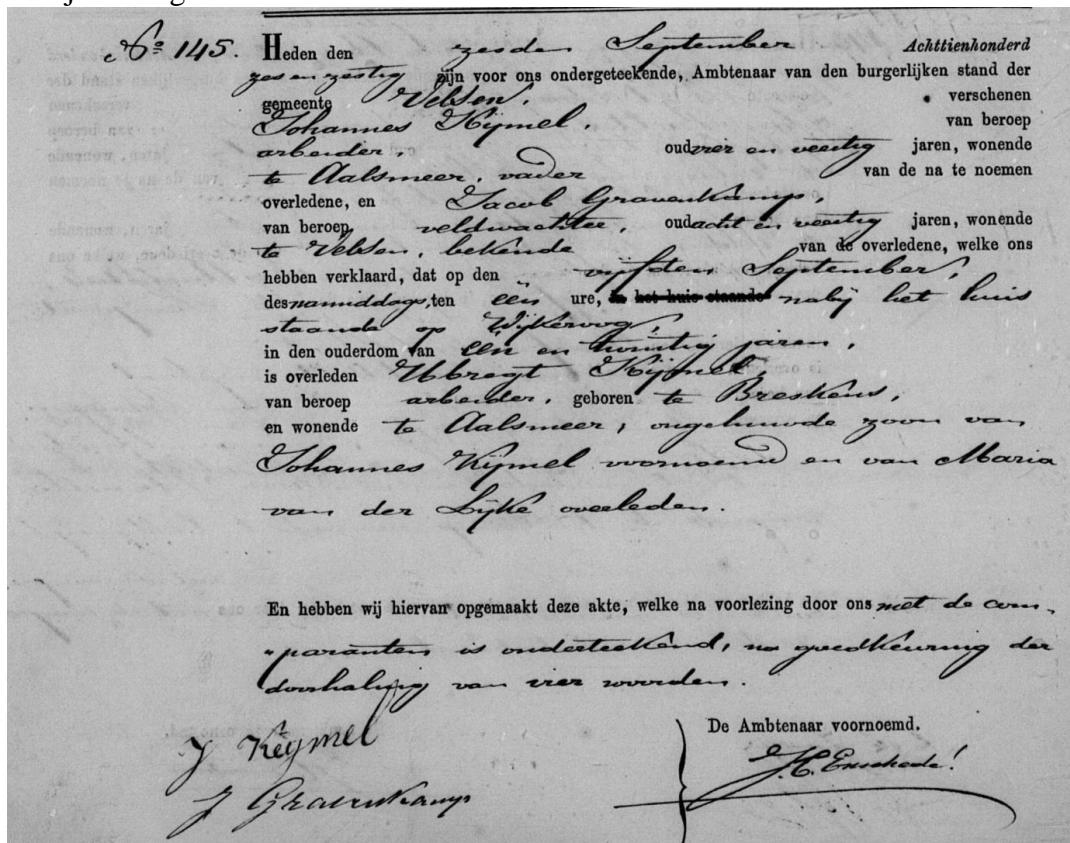 No 145. Heden den zesden September Achttienhonderd
zes en zestig zijn voor ons ondergeteekende, Ambtenaar van den burgerlijken stand der
gemeente Velsen, verschenen
Johannes Kijmel, van beroep
arbeider, oud vier en veertig jaren, wonende
te Aalsmeer, vader van de na te noemen
overledene, en Jacob Gravenkamp,
van beroep veldwachter, oud acht en veertig jaren, wonende
te Velsen, bekende van de overledene, welke ons
hebben verklaard, dat op den vijfden September,
des namiddags, ten één ure, in het huis staande nabij het huis
staande op Wijkeroog,
in den ouderdom van één en twintig jaren,
is overleden Ubregt Kijmel,
van beroep arbeider, geboren te Breskens,
en wonende te Aalsmeer, ongehuwde zoon van
Johannes Kijmel voornoemd en van Maria
van der Lijke overleden.
En hebben wij hiervan opgemaakt deze akte, welke na voorlezing door ons met de com-
paranten is onderteekend, na goedkeuring der
doorhaling van vier woorden.
De Ambtenaar voornoemd.
J Keijmel
J. C. Enschede!
J Gravenkamp